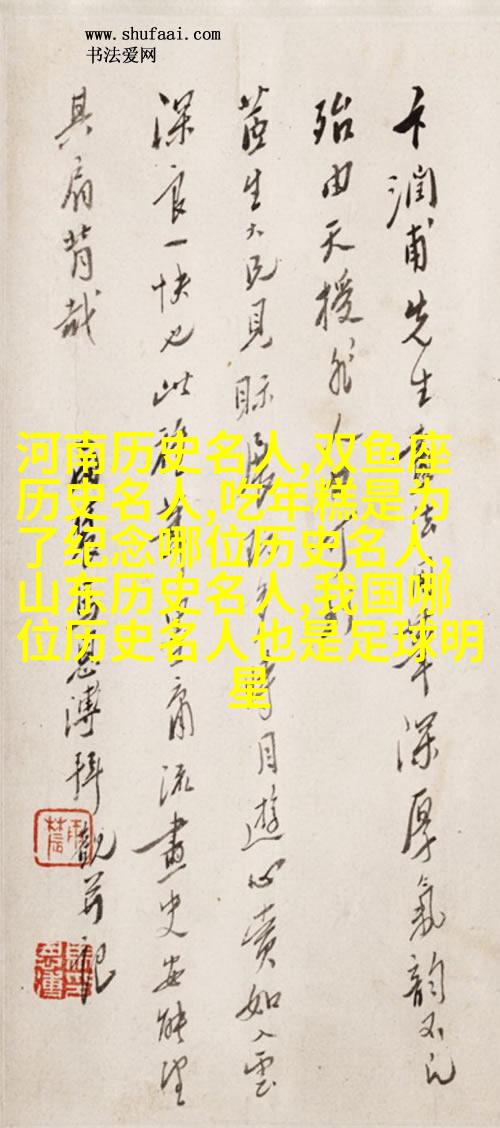 www.shufaai.com
书法爱网
河南历史名人,双鱼座
历史名人,吃年糕是为
了纪念哪位历史名人,
山东历史名人,我国哪
位历史名人也是足球明
星
卞潤甫先生深厚氣韵不凡
殆由天授非人
生大兄見眎目遊心賞如入雲
深良一快也此庸流畫史安能望
其肩背哉
溥拜觀並記